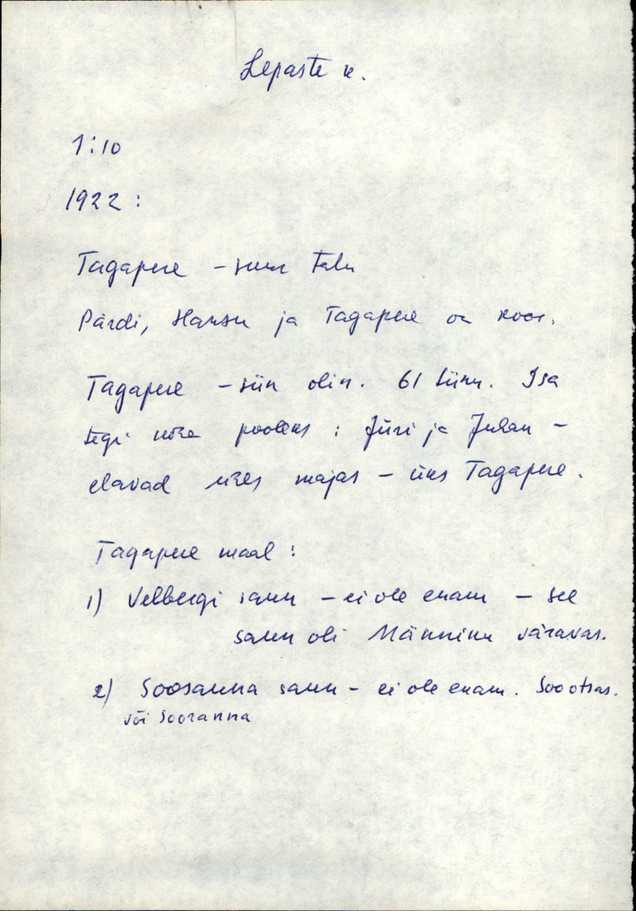 Lepaste k.
1:10
1922:
Tagapere - suur talu
Pärdi, Hansu ja Tagapere on koos.
Tagapere - siin olin. 61 tiinu. Isa
tegi pooleks: Jüri ja Juhan -
elavad ühes majas - üks Tagapere.
Tagapere maal:
1) Velbergi saun - ei ole enam - see
saun oli Männinu väravas.
2) Soosanna saun - ei ole enam. Soootsas.
või Sooranna